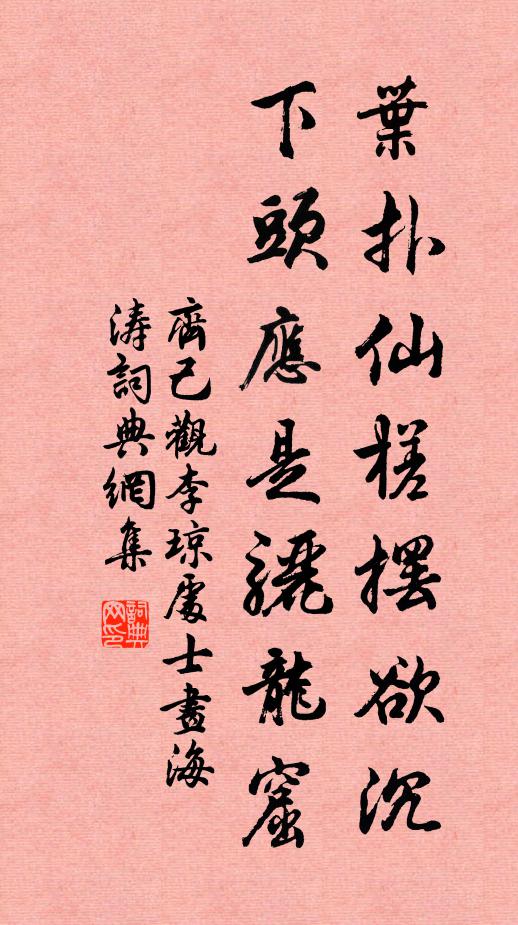 葉扑仙槎擺欲沉
下頭應是驪龍窟
齊己觀李琼處士畫海
涛詞典網集
詞典網印